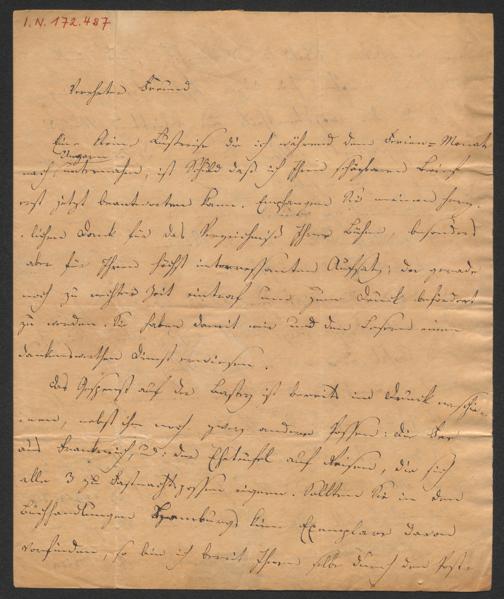 I.N. 172.487
Verehrter Freund
Eine kleine Lustreise die ich während dem Ferien-Monate
nach Ungarn unternahm, ist Schuld daß ich Ihren schätzbaren Brief
erst jetzt beantworten kann. Empfangen Sie meinen herz-
lichen Dank für das Verzeichniß Ihrer Bühne, besonders
aber für Ihren höchst interressanten Aufsatz; der gerade
noch zu rechter Zeit eintraf um zum Druck befördert
zu werden. Sie haben damit mir und den Lesern einen
dankenswerthen Dienst erwiesen.
Das Gespenst auf der Bastey ist bereits im Druck erschie-
nen, nebst ihm noch zwey andere Possen: der
aus Frankreich, u: der Eheteufel auf Reisen, die sich
alle 3 zu Fastnachtspossen eignen. Sollten Sie in den
Buchhandlungen Hamburgs kein Exemplare davon
vorfinden, so bin ich bereit Ihnen selbe durch den Post-